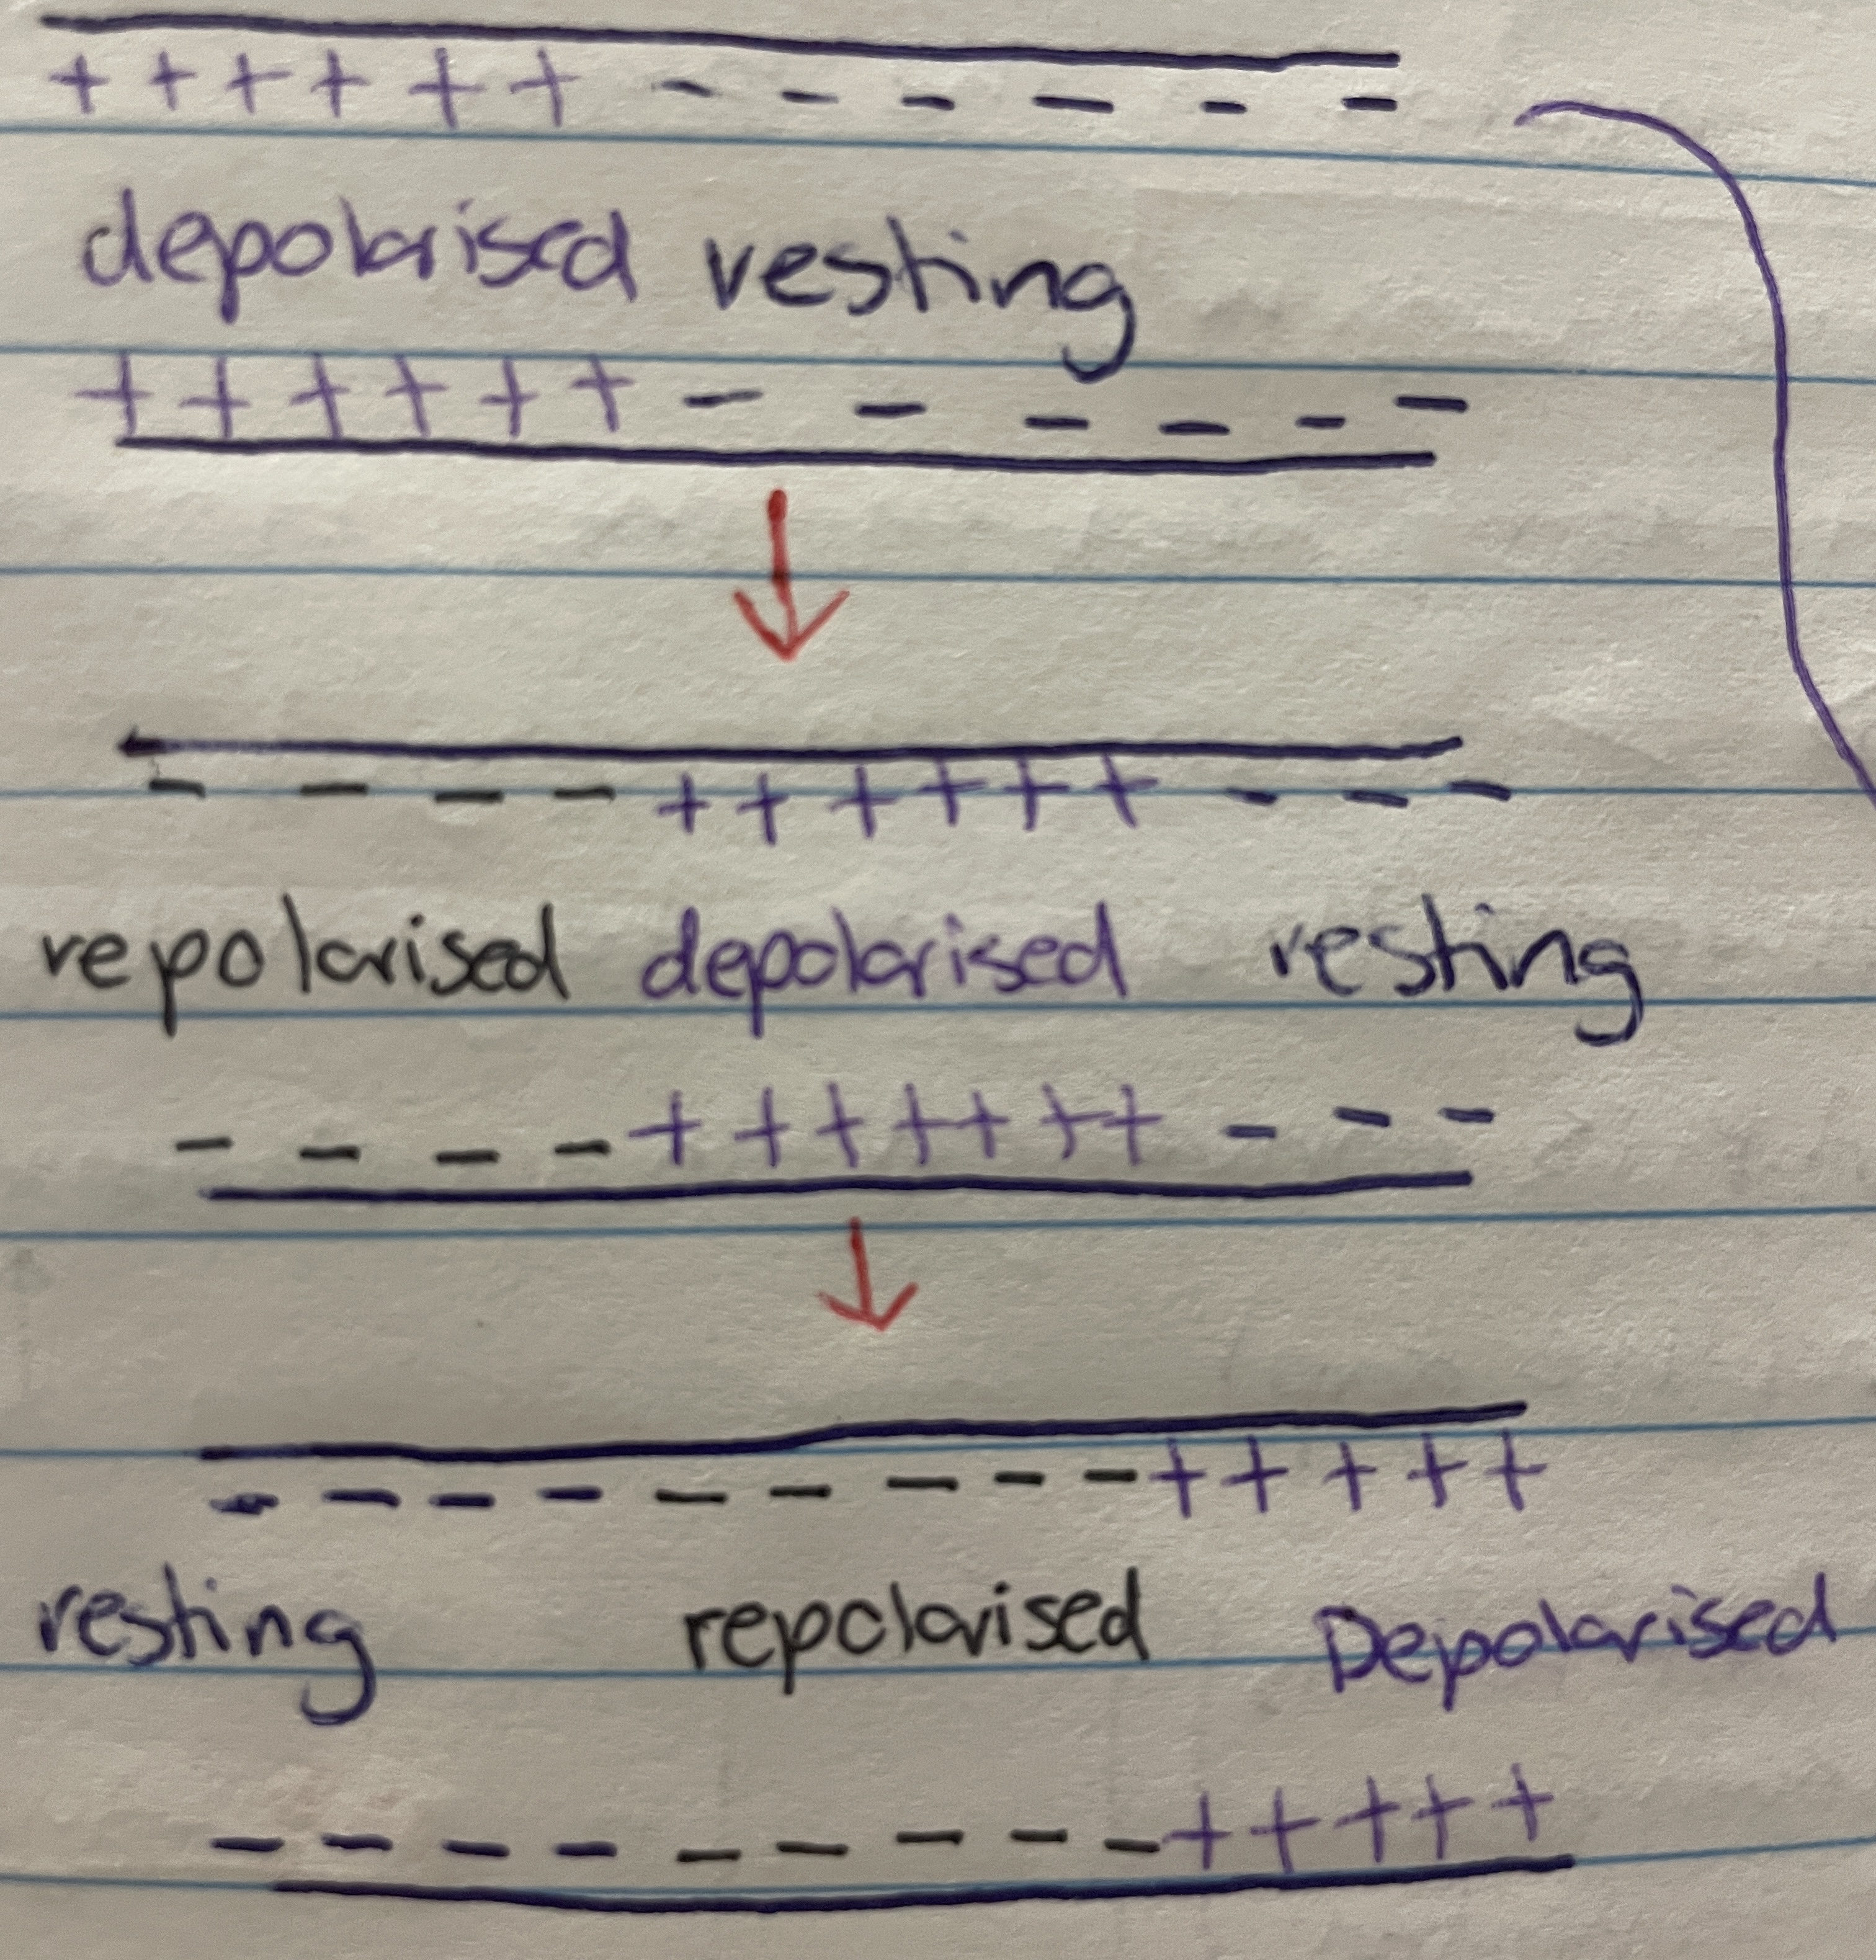 + + + + + + - - - - - -
depolarised resting
+ + + + + + - - - - - -
- - - - + + + + + + - - -
repolarised depolarised resting
- - - - + + + + + + + - - -
- - - - - - - - - + + + + +
resting repolarised Depolarised
- - - - - - - - - + + + + +